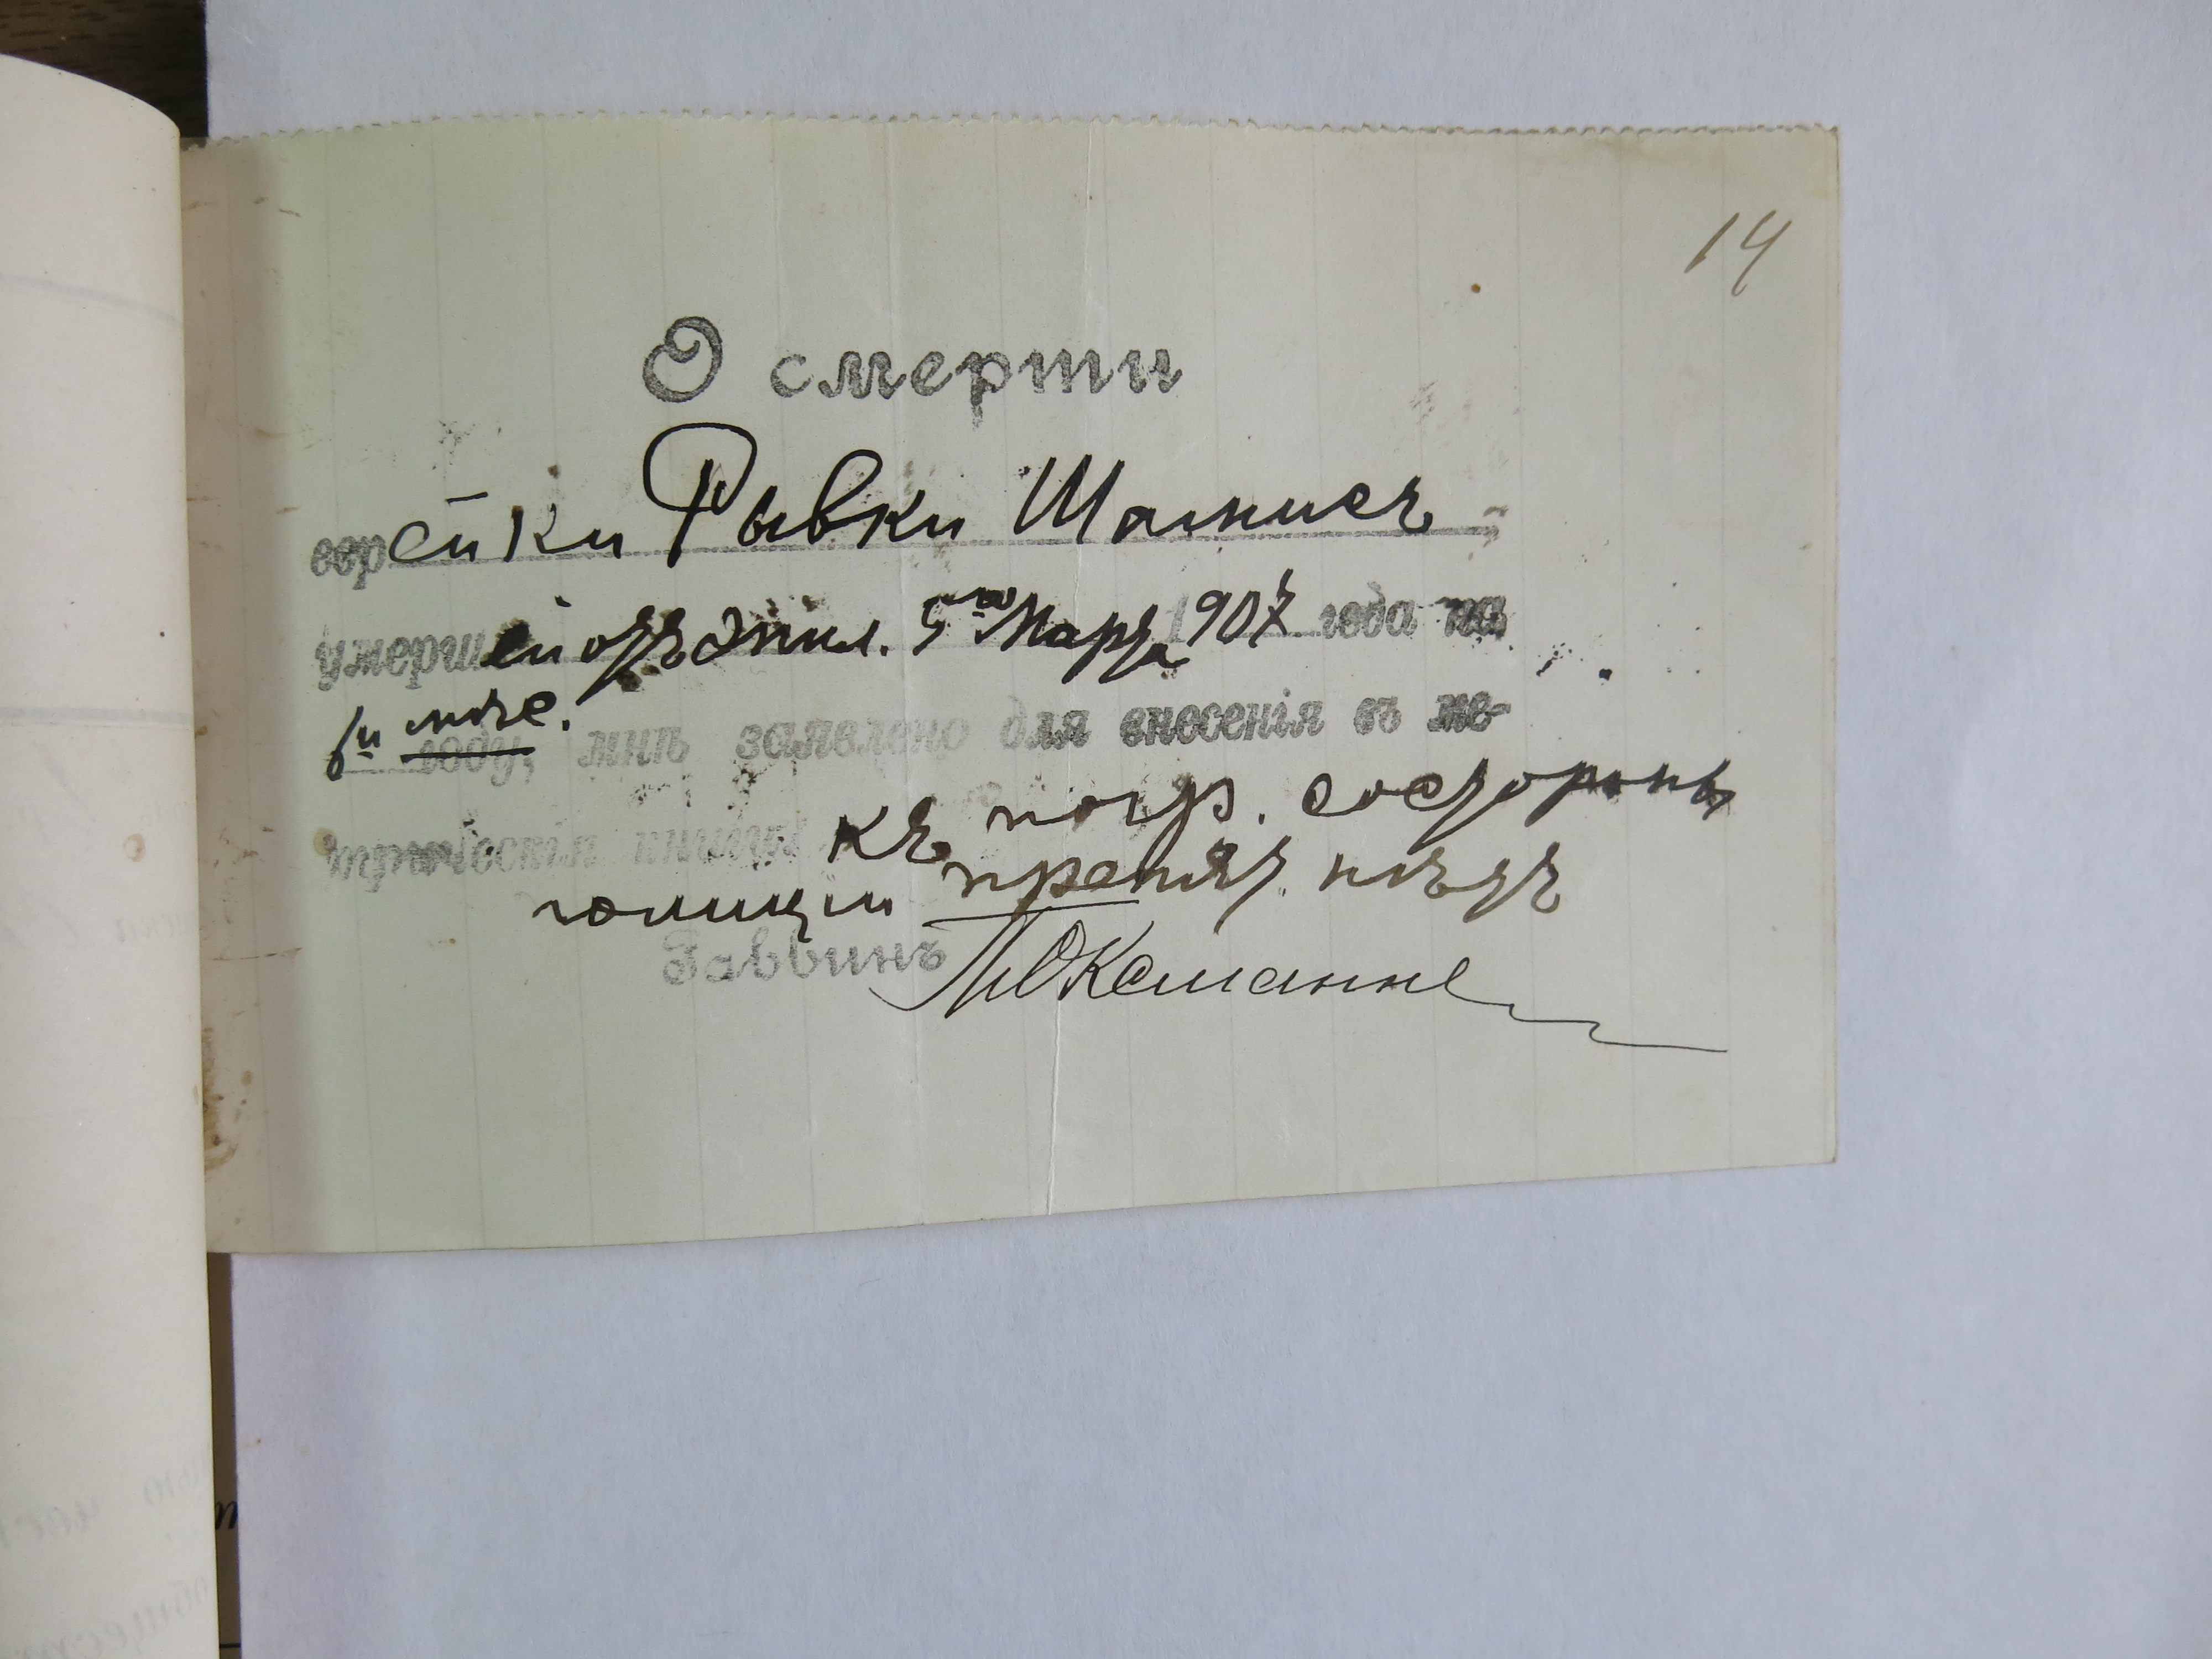 14
О смерти
еврейки Рывки Шамисъ
умершей отъ эпил. 5го Марта 1907 года на
6м мѣс. году, мнѣ заявлено для внесенія въ ме-
трическія книги; къ погр. состороны
полиціи препят. нѣтъ
Раввинъ